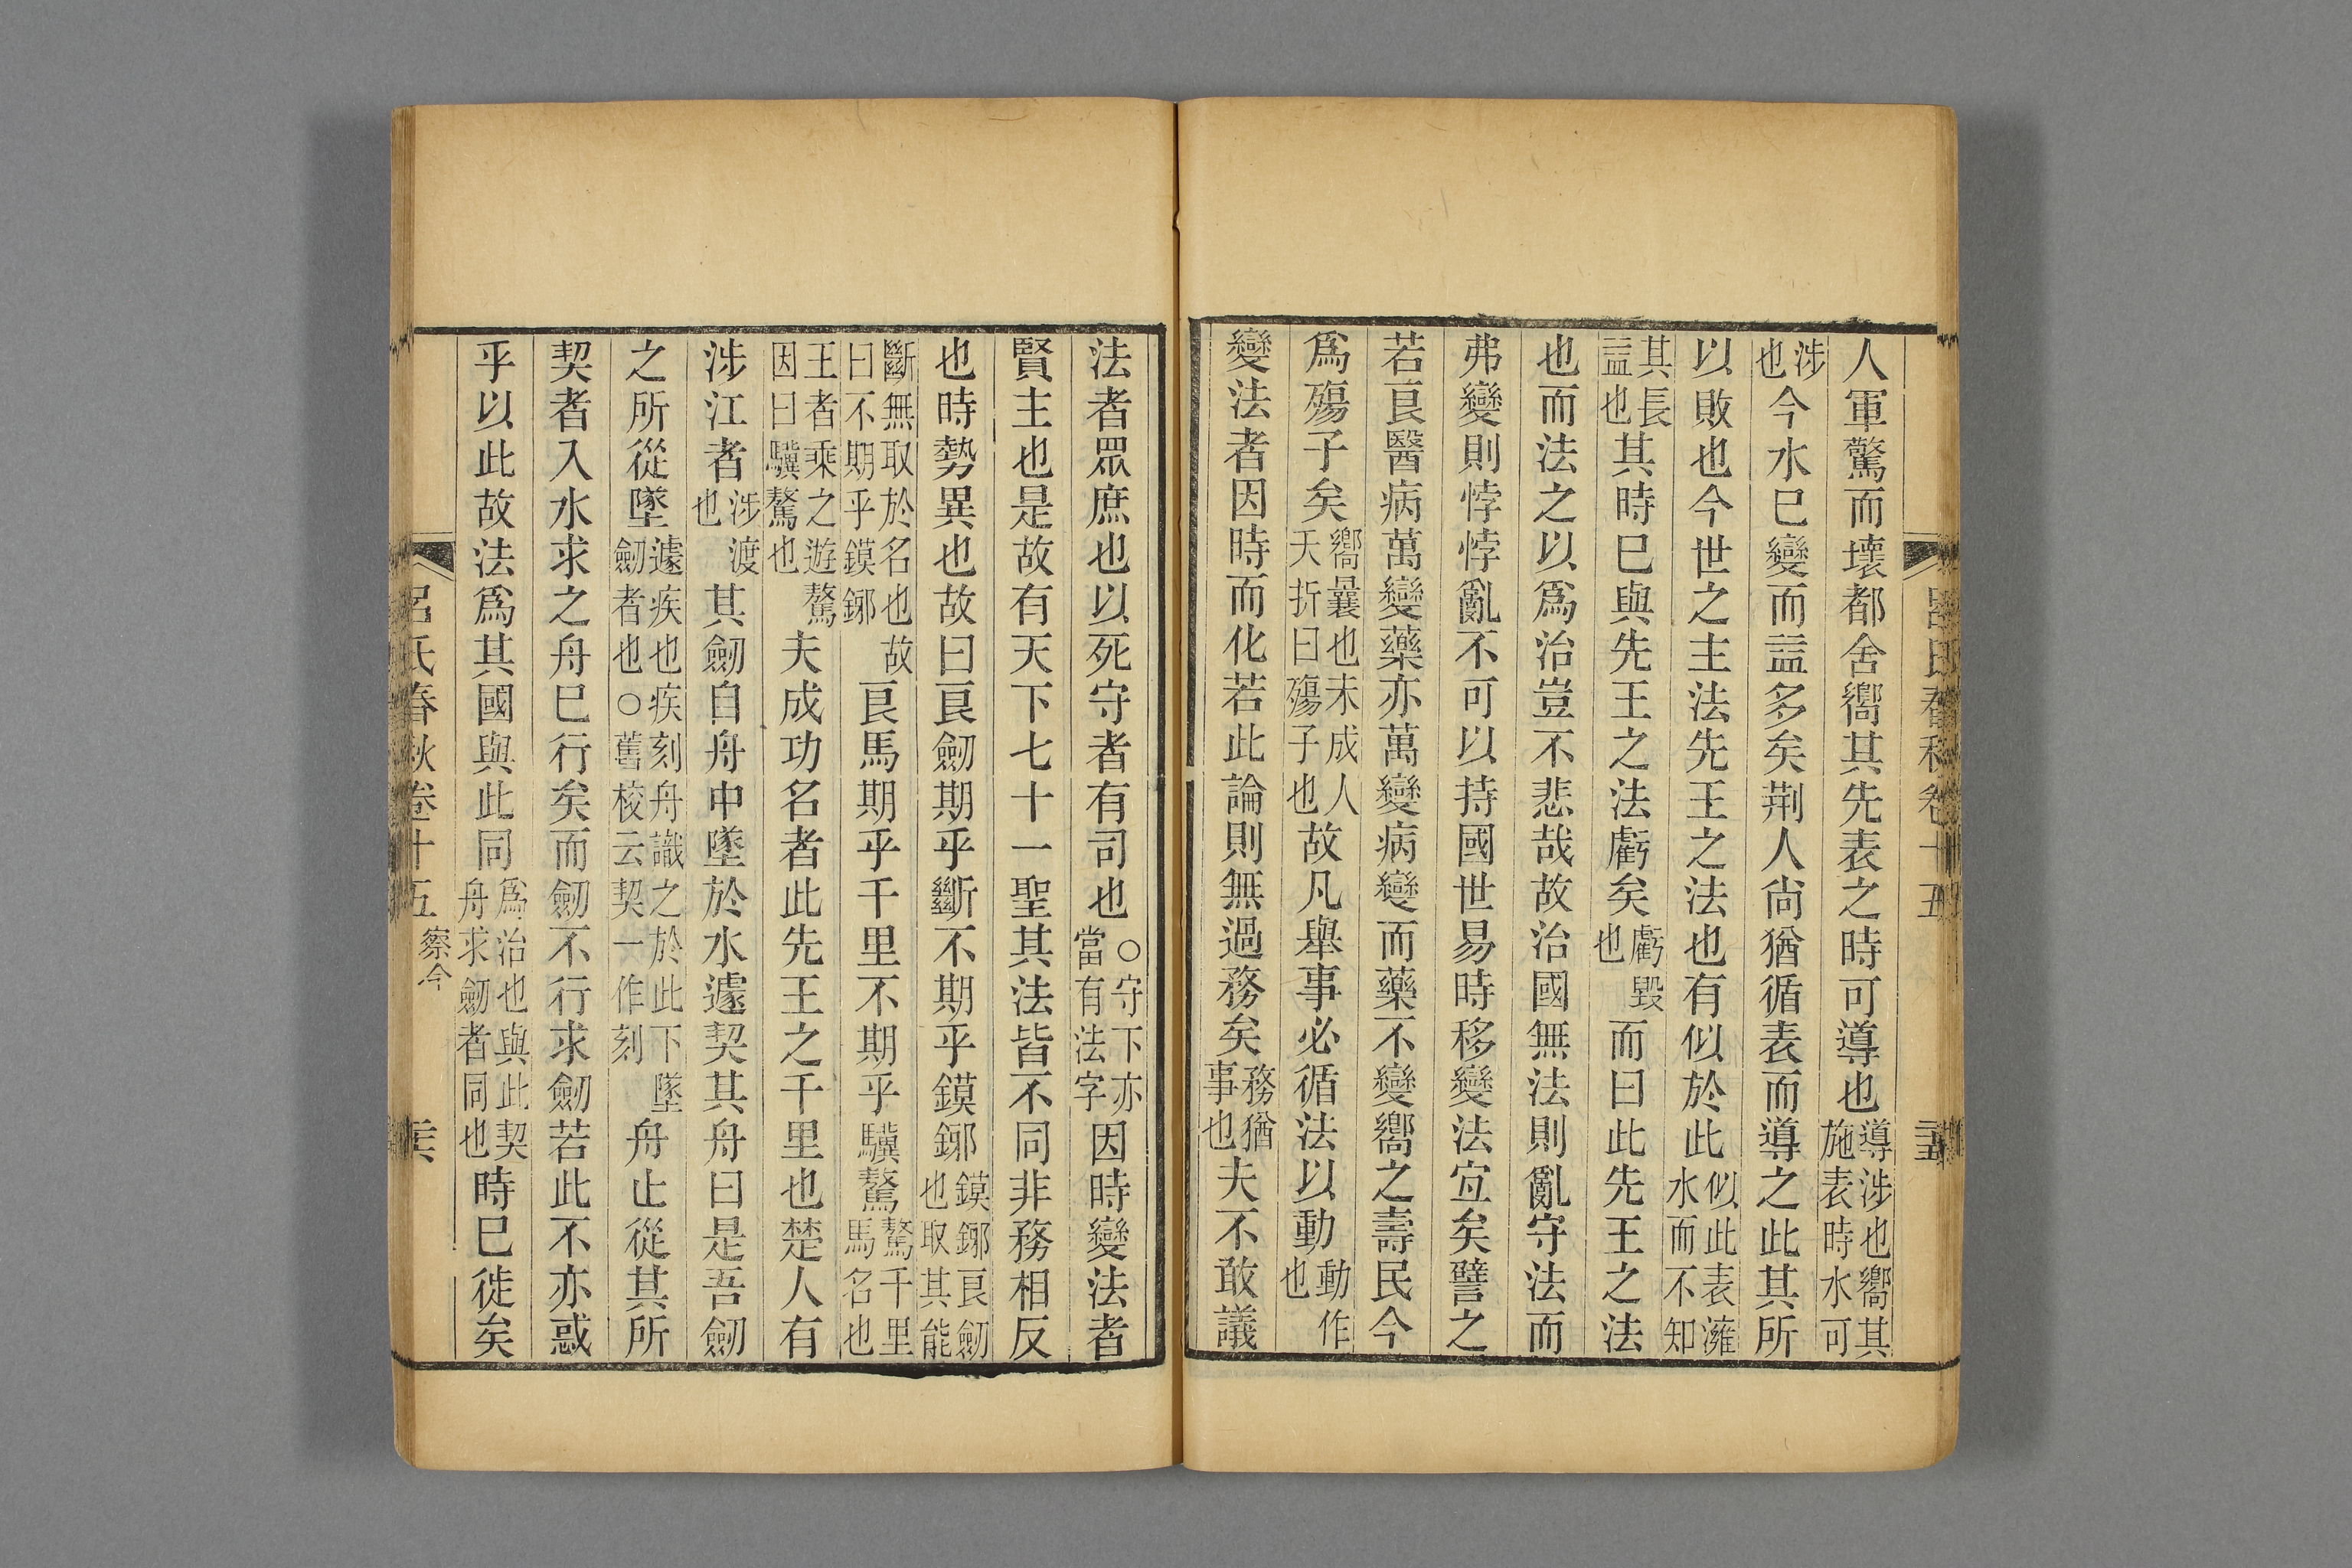 呂氏春秋卷十五
人軍驚而壞都舍嚮其先表之時可導也導涉也嚮其施表時水可
涉也今水巳變而益多矣荆人尚猶循表而導之此其所
以敗也今世之主法先王之法也有似於此似此表澭水而不知
其長益也其時巳與先王之法虧矣虧毀也而曰此先王之法
也而法之以爲治豈不悲哉故治國無法則亂守法而
弗變則悖悖亂不可以持國世易時移變法宜矣譬之
若良醫病萬變藥亦萬變病變而藥不變嚮之壽民今
爲殤子矣嚮曩也未成人夭折曰殤子也故凡舉事必循法以動動作也
變法者因時而化若此論則無過務矣務猶事也夫不敢議
法者眾庶也以死守者有司也○守下亦當有法字因時變法者
賢主也是故有天下七十一聖其法皆不同非務相反
也時勢異也故曰良劒期乎斷不期乎鏌鋣鏌鋣良劒也取其能
斷無取於名也故曰不期乎鏌鋣良馬期乎千里不期乎驥驁驁千里馬名也
王者乘之遊驁因曰驥驁也夫成功名者此先王之千里也楚人有
涉江者涉渡也其劒自舟中墜於水遽契其舟曰是吾劒
之所從墜遽疾也疾刻舟識之於此下墜劒者也○舊校云契一作刻舟止從其所
契者入水求之舟巳行矣而劒不行求劒若此不亦惑
乎以此故法爲其國與此同爲治也與此契舟求劒者同也時巳徙矣
呂氏春秋卷十五 察今